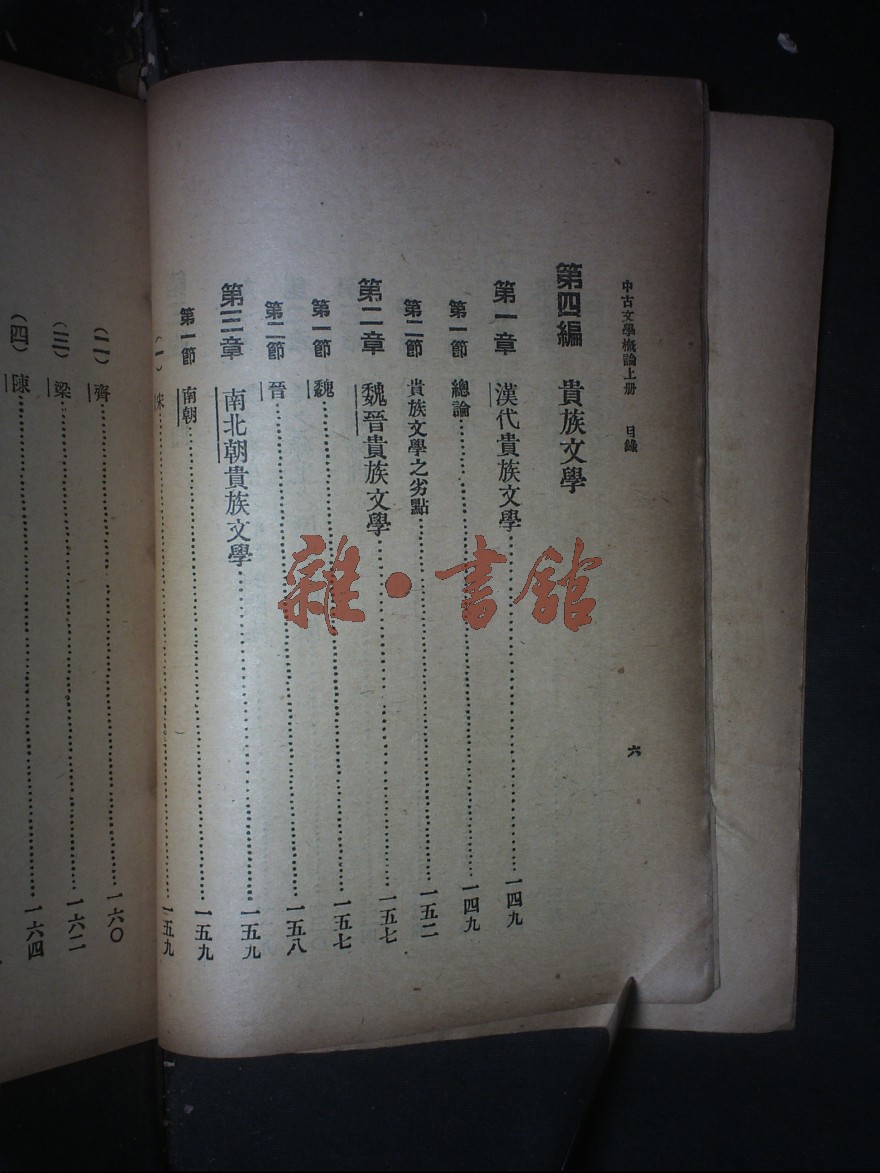 中古文學槪論上册 目錄 六
第四編 貴族文學
第一章 漢代貴族文學 一四九
第一節 總論 一四九
第二節 貴族文學之劣點 一五二
第二章 魏晉貴族文學 一五七
第一節 魏 一五七
第二節 晉 一五八
第三章 南北朝貴族文學 一五九
第一節 南朝 一五九
(一) 宋 一五九
(二) 齊 一六〇
(三) 梁 一六二
(四) 陳 一六四
雜·書館